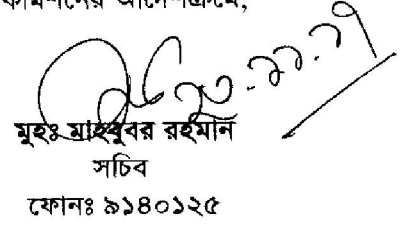 কমিশনের আদেশক্রমে,
মুহঃ মাহবুবর রহমান
সচিব
ফোনঃ ৯১৪০১২৫